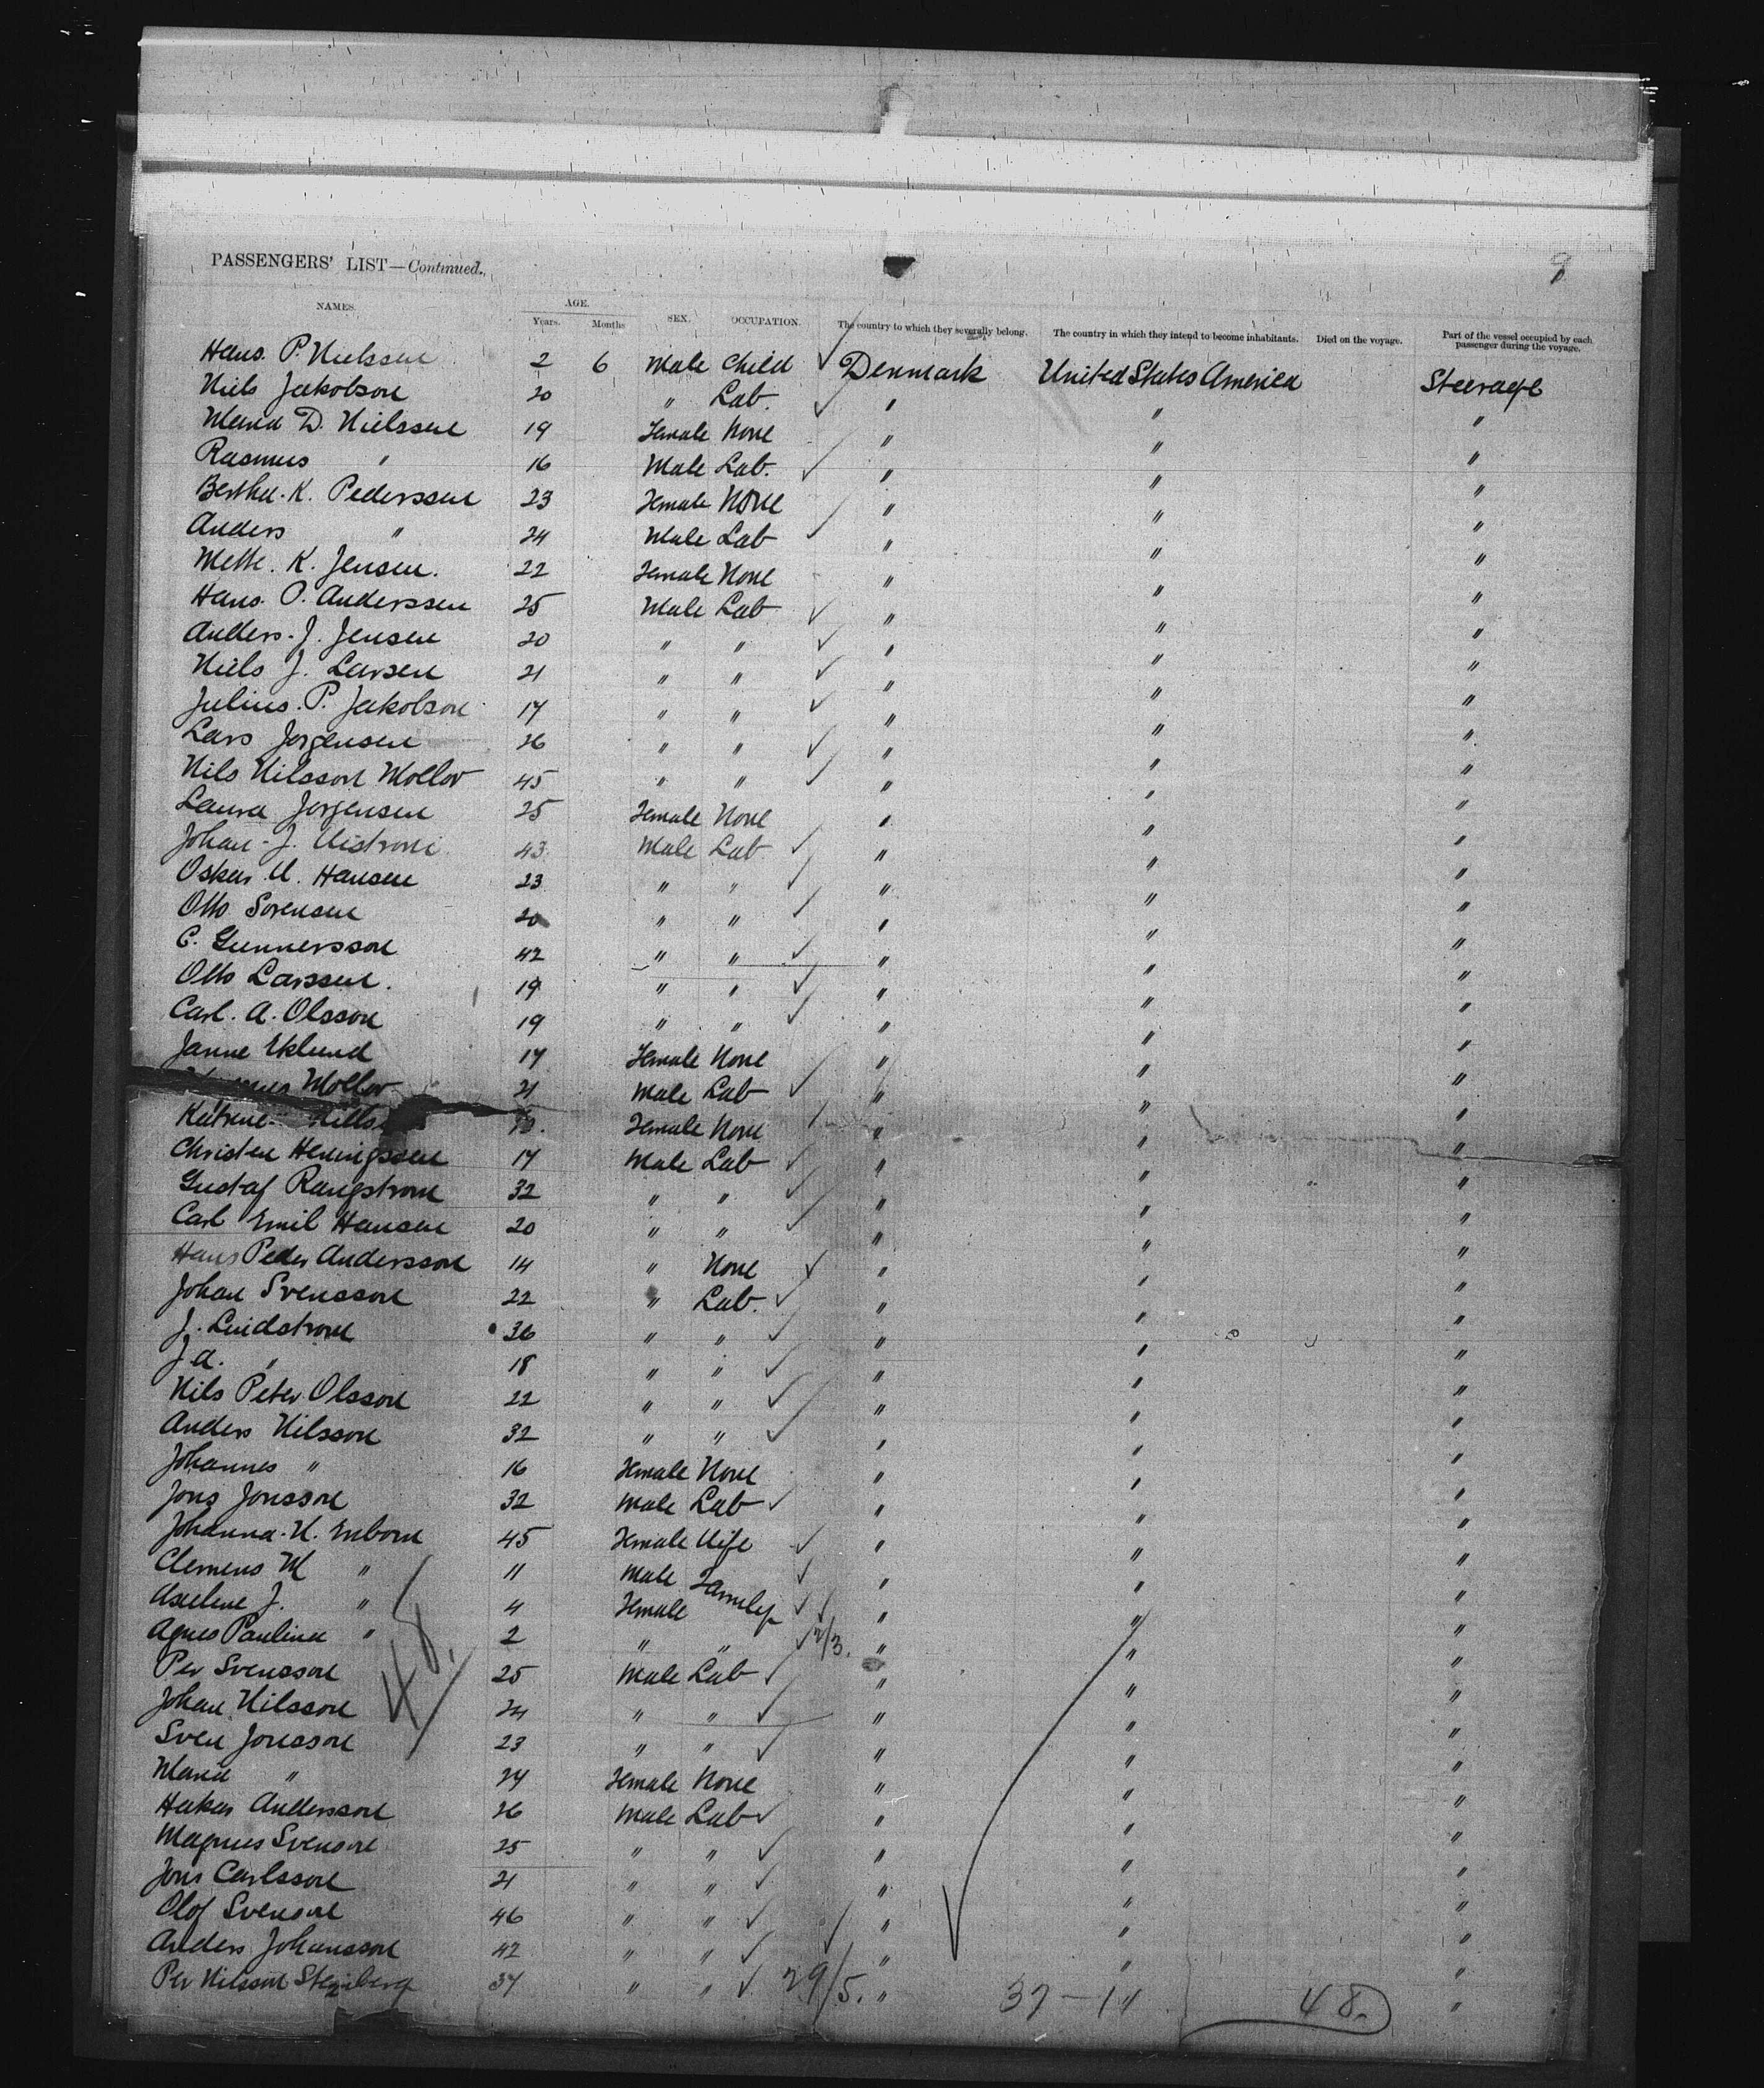 PASSENGERS' LIST—Continued. 9
NAMES. AGE. Years. Months SEX. OCCUPATION. The country to which they severally belong. The country in which they intend to become inhabitants. Died on the voyage. Part of the vessel occupied by each passenger during the voyage.
Hans. P. Nielssen 2 6 Male Child ✓ Denmark United States America Steerage
Niels Jakobson 20 " Lab. ✓ " " "
Maria D. Nielssen 19 Female None " " "
Rasmus " 16 Male Lab. ✓ " " "
Berthe. K. Pederssen 23 Female None " " "
Anders " 24 Male Lab ✓ " " "
Mette. K. Jensen. 22 Female None " " "
Hans. P. Anderssen 25 Male Lab ✓ " " "
Anders. J. Jensen 20 " " ✓ " " "
Niels J. Larsen 21 " " ✓ " " "
Julius. P. Jakobson 17 " " ✓ " " "
Lars Jorgensen 26 " " ✓ " " "
Nils Nilsson Moller 45 " " ✓ " " "
Laura Jorgensen 25 Female None " " "
Johan. J. 43 Male Lab ✓ " " "
Oskar U. Hansen 23 " " ✓ " " "
Otto Sorensen 20 " " ✓ " " "
C. Gunnersson 42 " " ✓ " " "
Otto Larssen. 19 " " ✓ " " "
Carl. A. Olsson 19 " " ✓ " " "
Janne Eklund 17 Female None " " "
Moller 21 Male Lab ✓ " " "
Katrine Female None " " "
Christen Heningssen 17 Male Lab ✓ " " "
Gustaf Rangstrom 32 " " ✓ " " "
Carl Emil Hansen 20 " " ✓ " " "
Hans Peder Andersson 14 " None ✓ " " "
Johan Svensson 22 " Lab. ✓ " " "
J. Lindstrom 36 " " ✓ " " "
J. A. " 18 " " ✓ " " "
Nils Peter Olsson 22 " " ✓ " " "
Anders Nilsson 32 " " ✓ " " "
Johannes " 16 Female None " " "
Jons Jonsson 32 Male Lab ✓ " " "
Johanna. U. Enbom 45 Female Wife ✓ " " "
Clemens M " 11 Male Family ✓ " " "
Axeline J. " 4 Female ✓ " " "
Agnes Paulina " 2 " " ✓ 2/3. " " "
Per Svensson 25 Male Lab ✓ " " "
Johan Nilsson 24 " " ✓ " " "
Sven Jonsson 23 " " ✓ " " "
Maria " 24 Female None " " "
Hakan Andersson 26 Male Lab ✓ " " "
Magnus Svenson 25 " " ✓ " " "
Jons Carlsson 21 " " ✓ " " "
Olof Svenson 46 " " ✓ " " "
Anders Johansson 42 " " ✓ " " "
Per Nilsson Stenberg 37 " " ✓ 29/5. " "
48.
37 - 11 48.